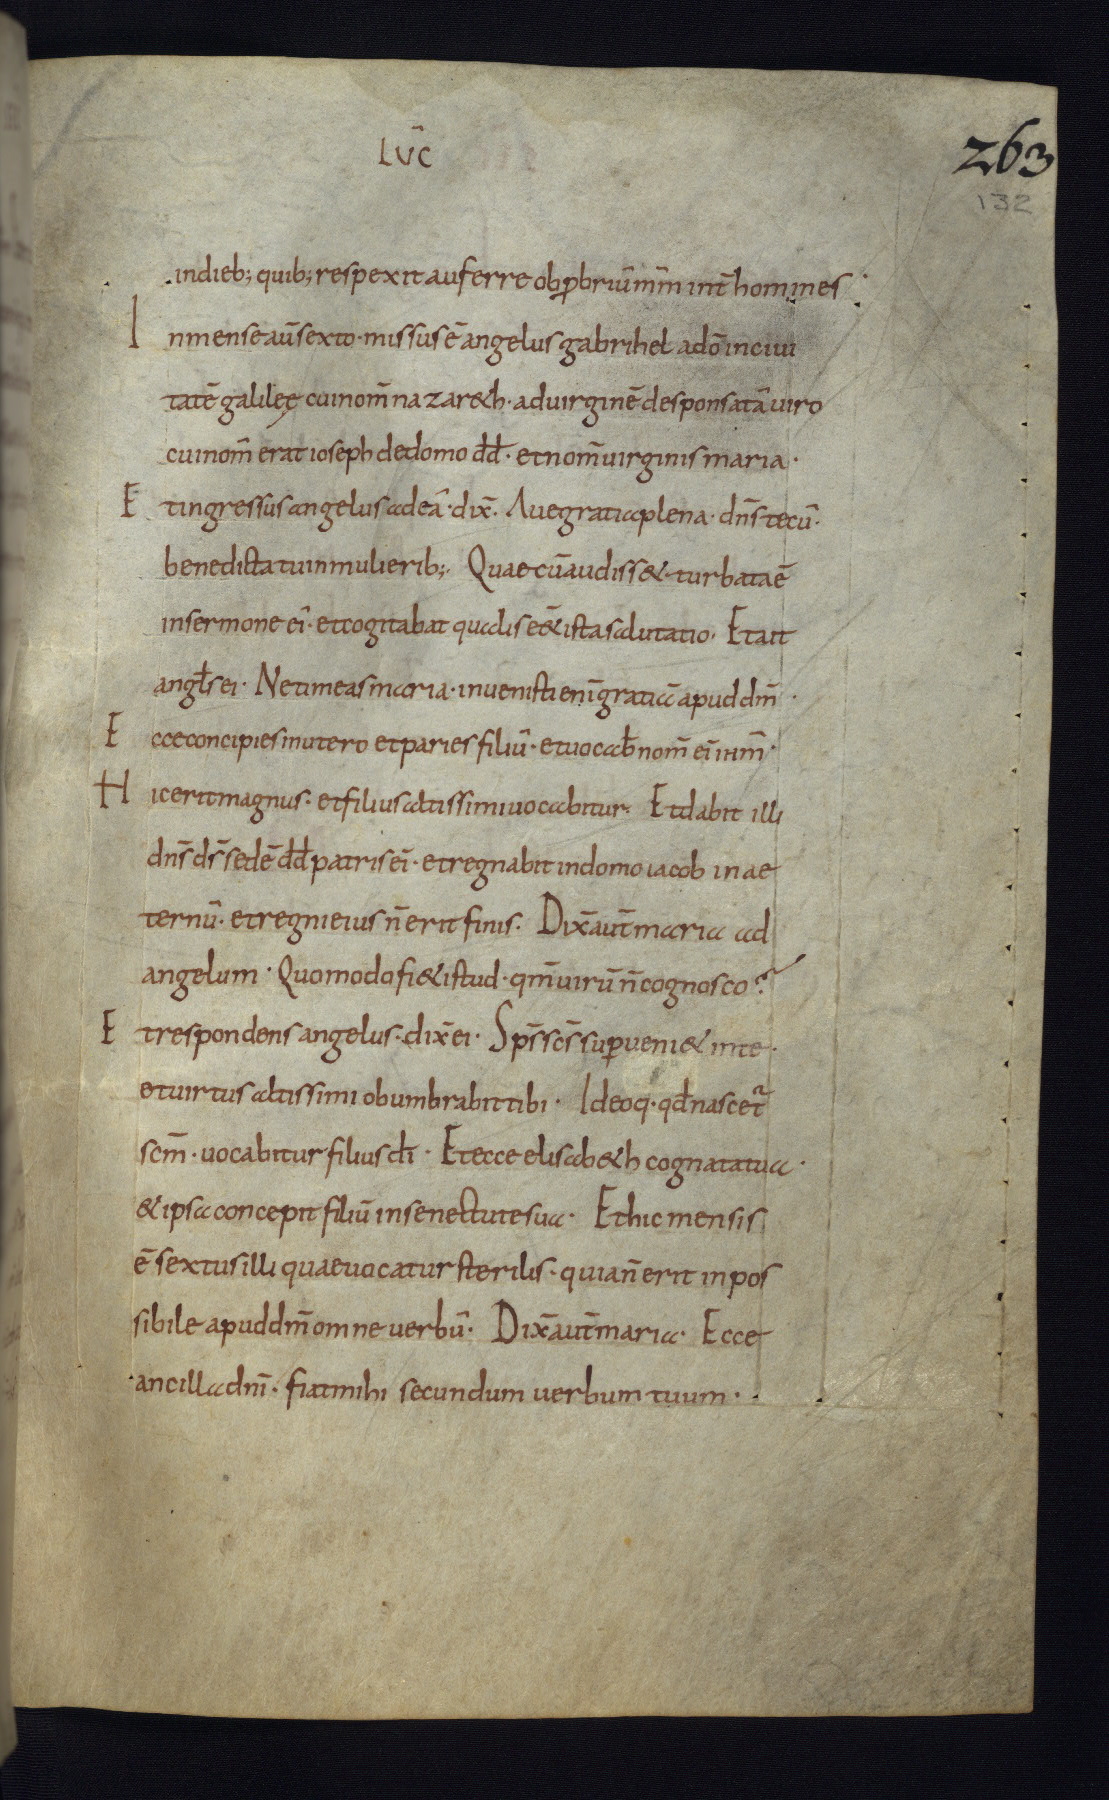 LUC̄
263
132
indieb; quib; respexit auferre obꝓbriū mm̄ int̄ homines
In mense aut̄ sexto· missus ē angelus gabrihel ado inciui
tatē galileę cui nom̄ nazar&h· aduirginē desponsatā uiro
cui nom̄ erat ioseph dedomo dd̄· et nom̄ uirginis maria·
Et ingressus angelus adeā· dix̄· Aue gratia plena· dn̄s tecū·
benedicta tu inmulierib;· Quae cū audiss& turbata ē
insermone ei᷒· et cogitabat qualis eē& ista salutatio· Et ait
angl̄s ei· Ne timeas maria· inuenisti enī gratiā apud dm̄·
Ecce concipies inutero et paries filiū· et uocab̄ nom̄ ei᷒ ihm̄·
Hic erit magnus· et filius altissimi uocabitur· Et dabit illi
dn̄s ds̄ sedē dd̄ patris ei᷒· et regnabit indomo iacob in ae
ternū· et regni eius n̄ erit finis· Dix̄ aut̄ maria ad
angelum· Quomodo fi& istud· qm̄ uirū n̄ cognosco?
Et respondens angelus· dix̄ ei· Sps̄ scs̄ suꝑueni& inte·
et uirtus altissimi obumbrabit tibi· Ideoq· qd̄ nascet̄
scm̄· uocabitur filius dī· Et ecce elisab&h cognata tua·
& ipsa concepit filiū insenectute sua· Et hic mensis
ē sextus illi quae uocatur sterilis· quia n̄ erit inpos
sibile apud dm̄ omne uerbū· Dix̄ aut̄ maria· Ecce
ancilla dnī· fiat mihi secundum uerbum tuum·